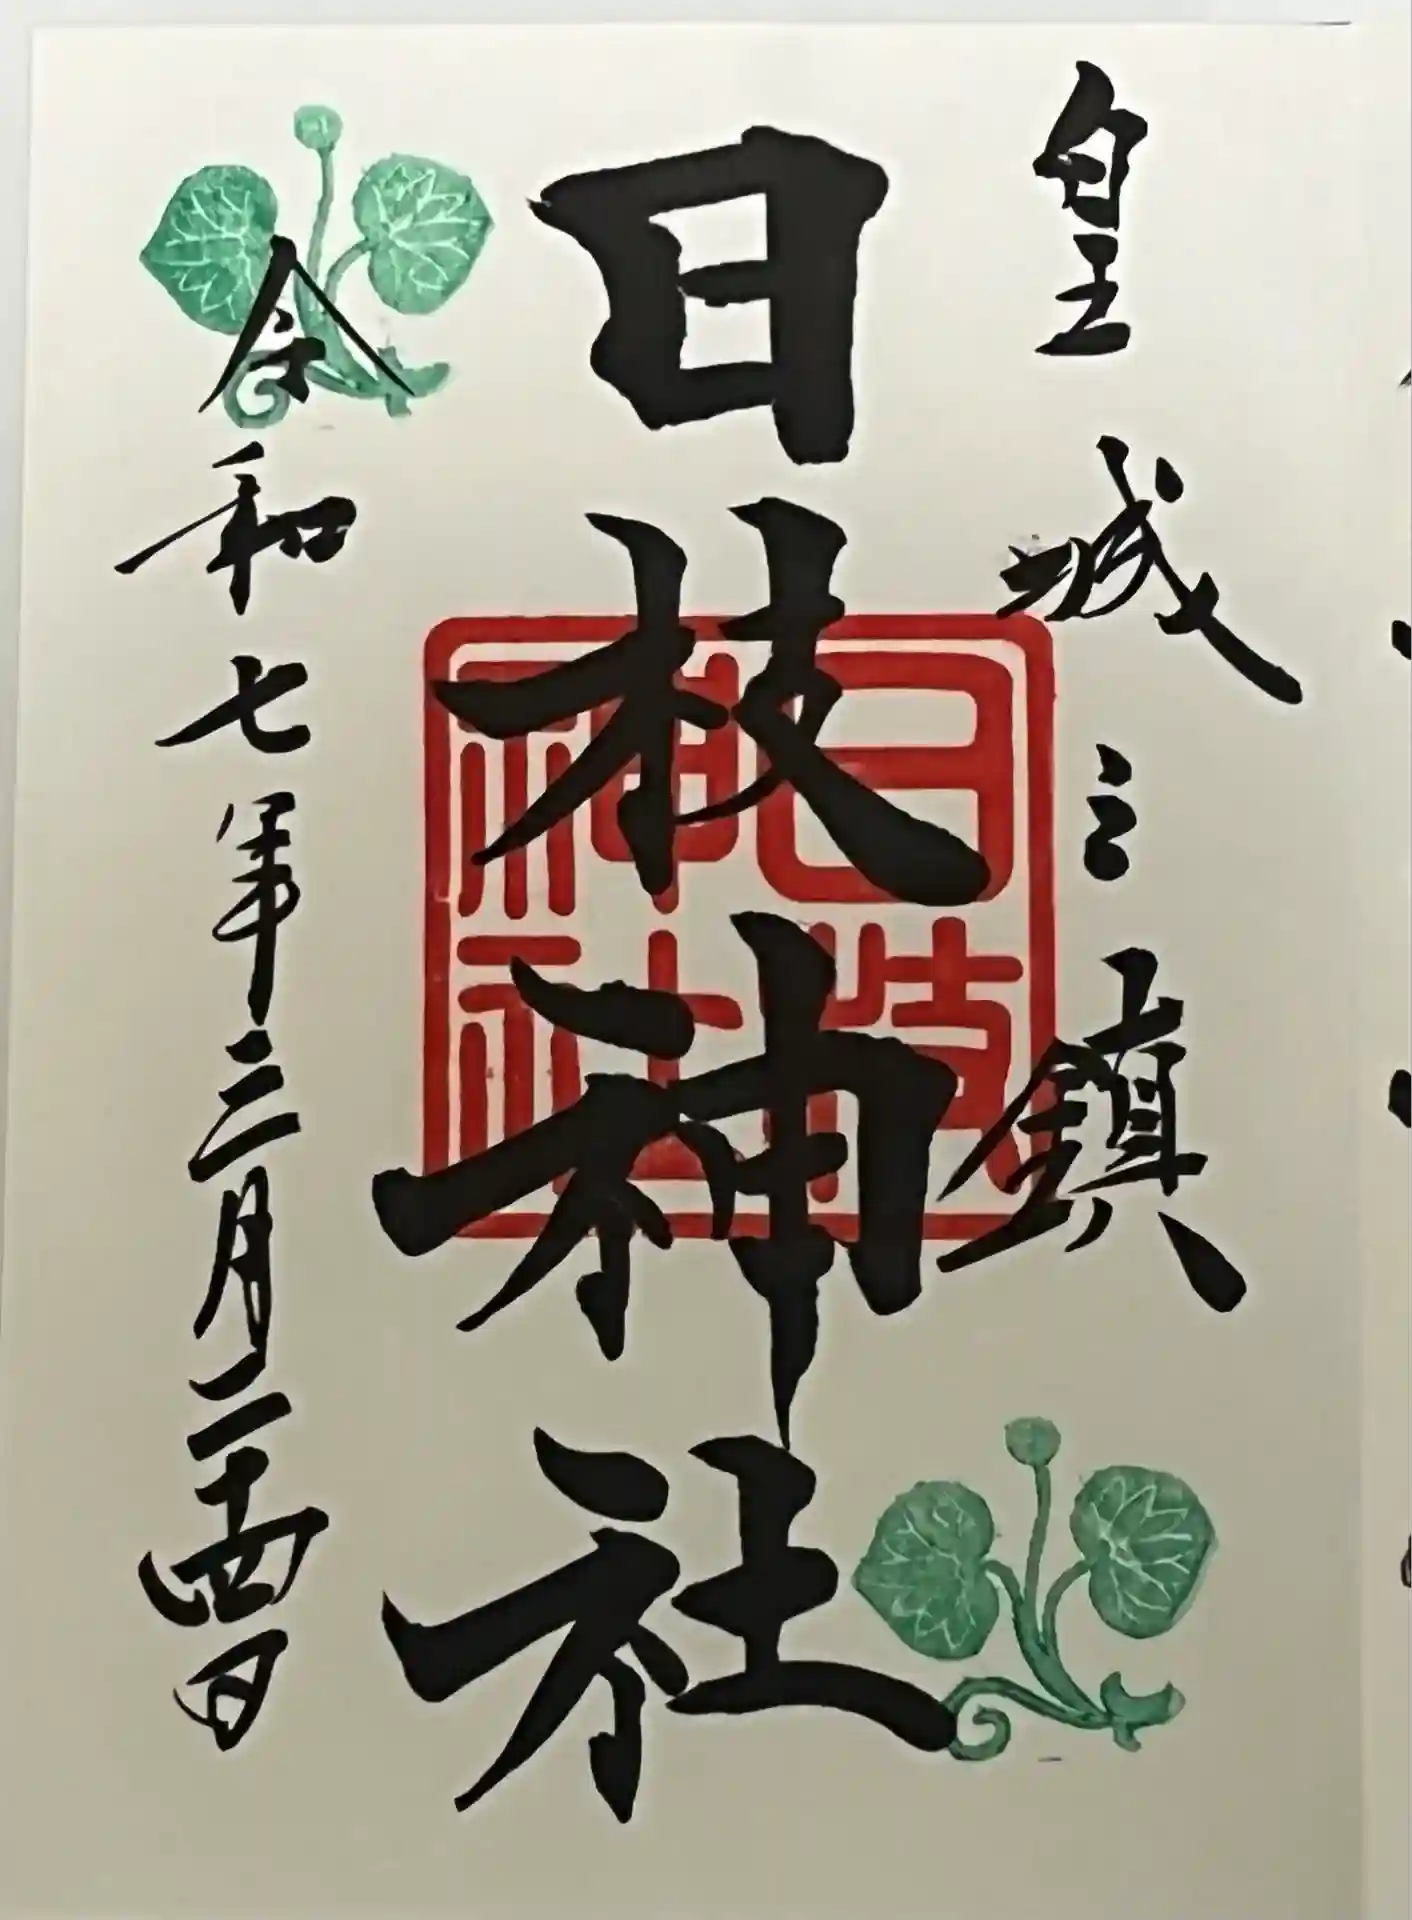 皇城之鎮
日枝神社
日枝神社
令和七年三月二十四日